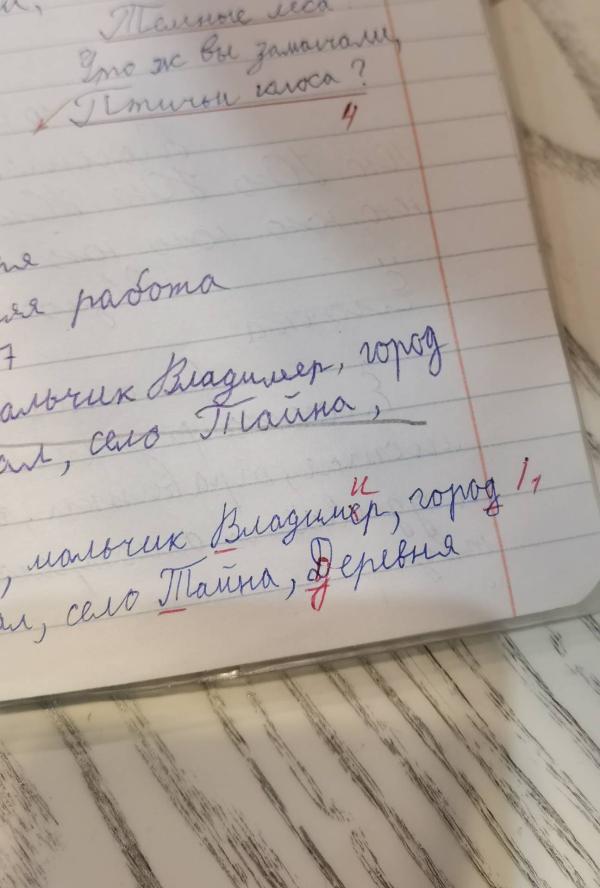 Темные леса
Что ж вы замолчали,
Птичьи голоса?
4
работа
7
мальчик Владимер, город
село Тайна,
и
, мальчик Владимер, город 1,
село Тайна, Деревня
д